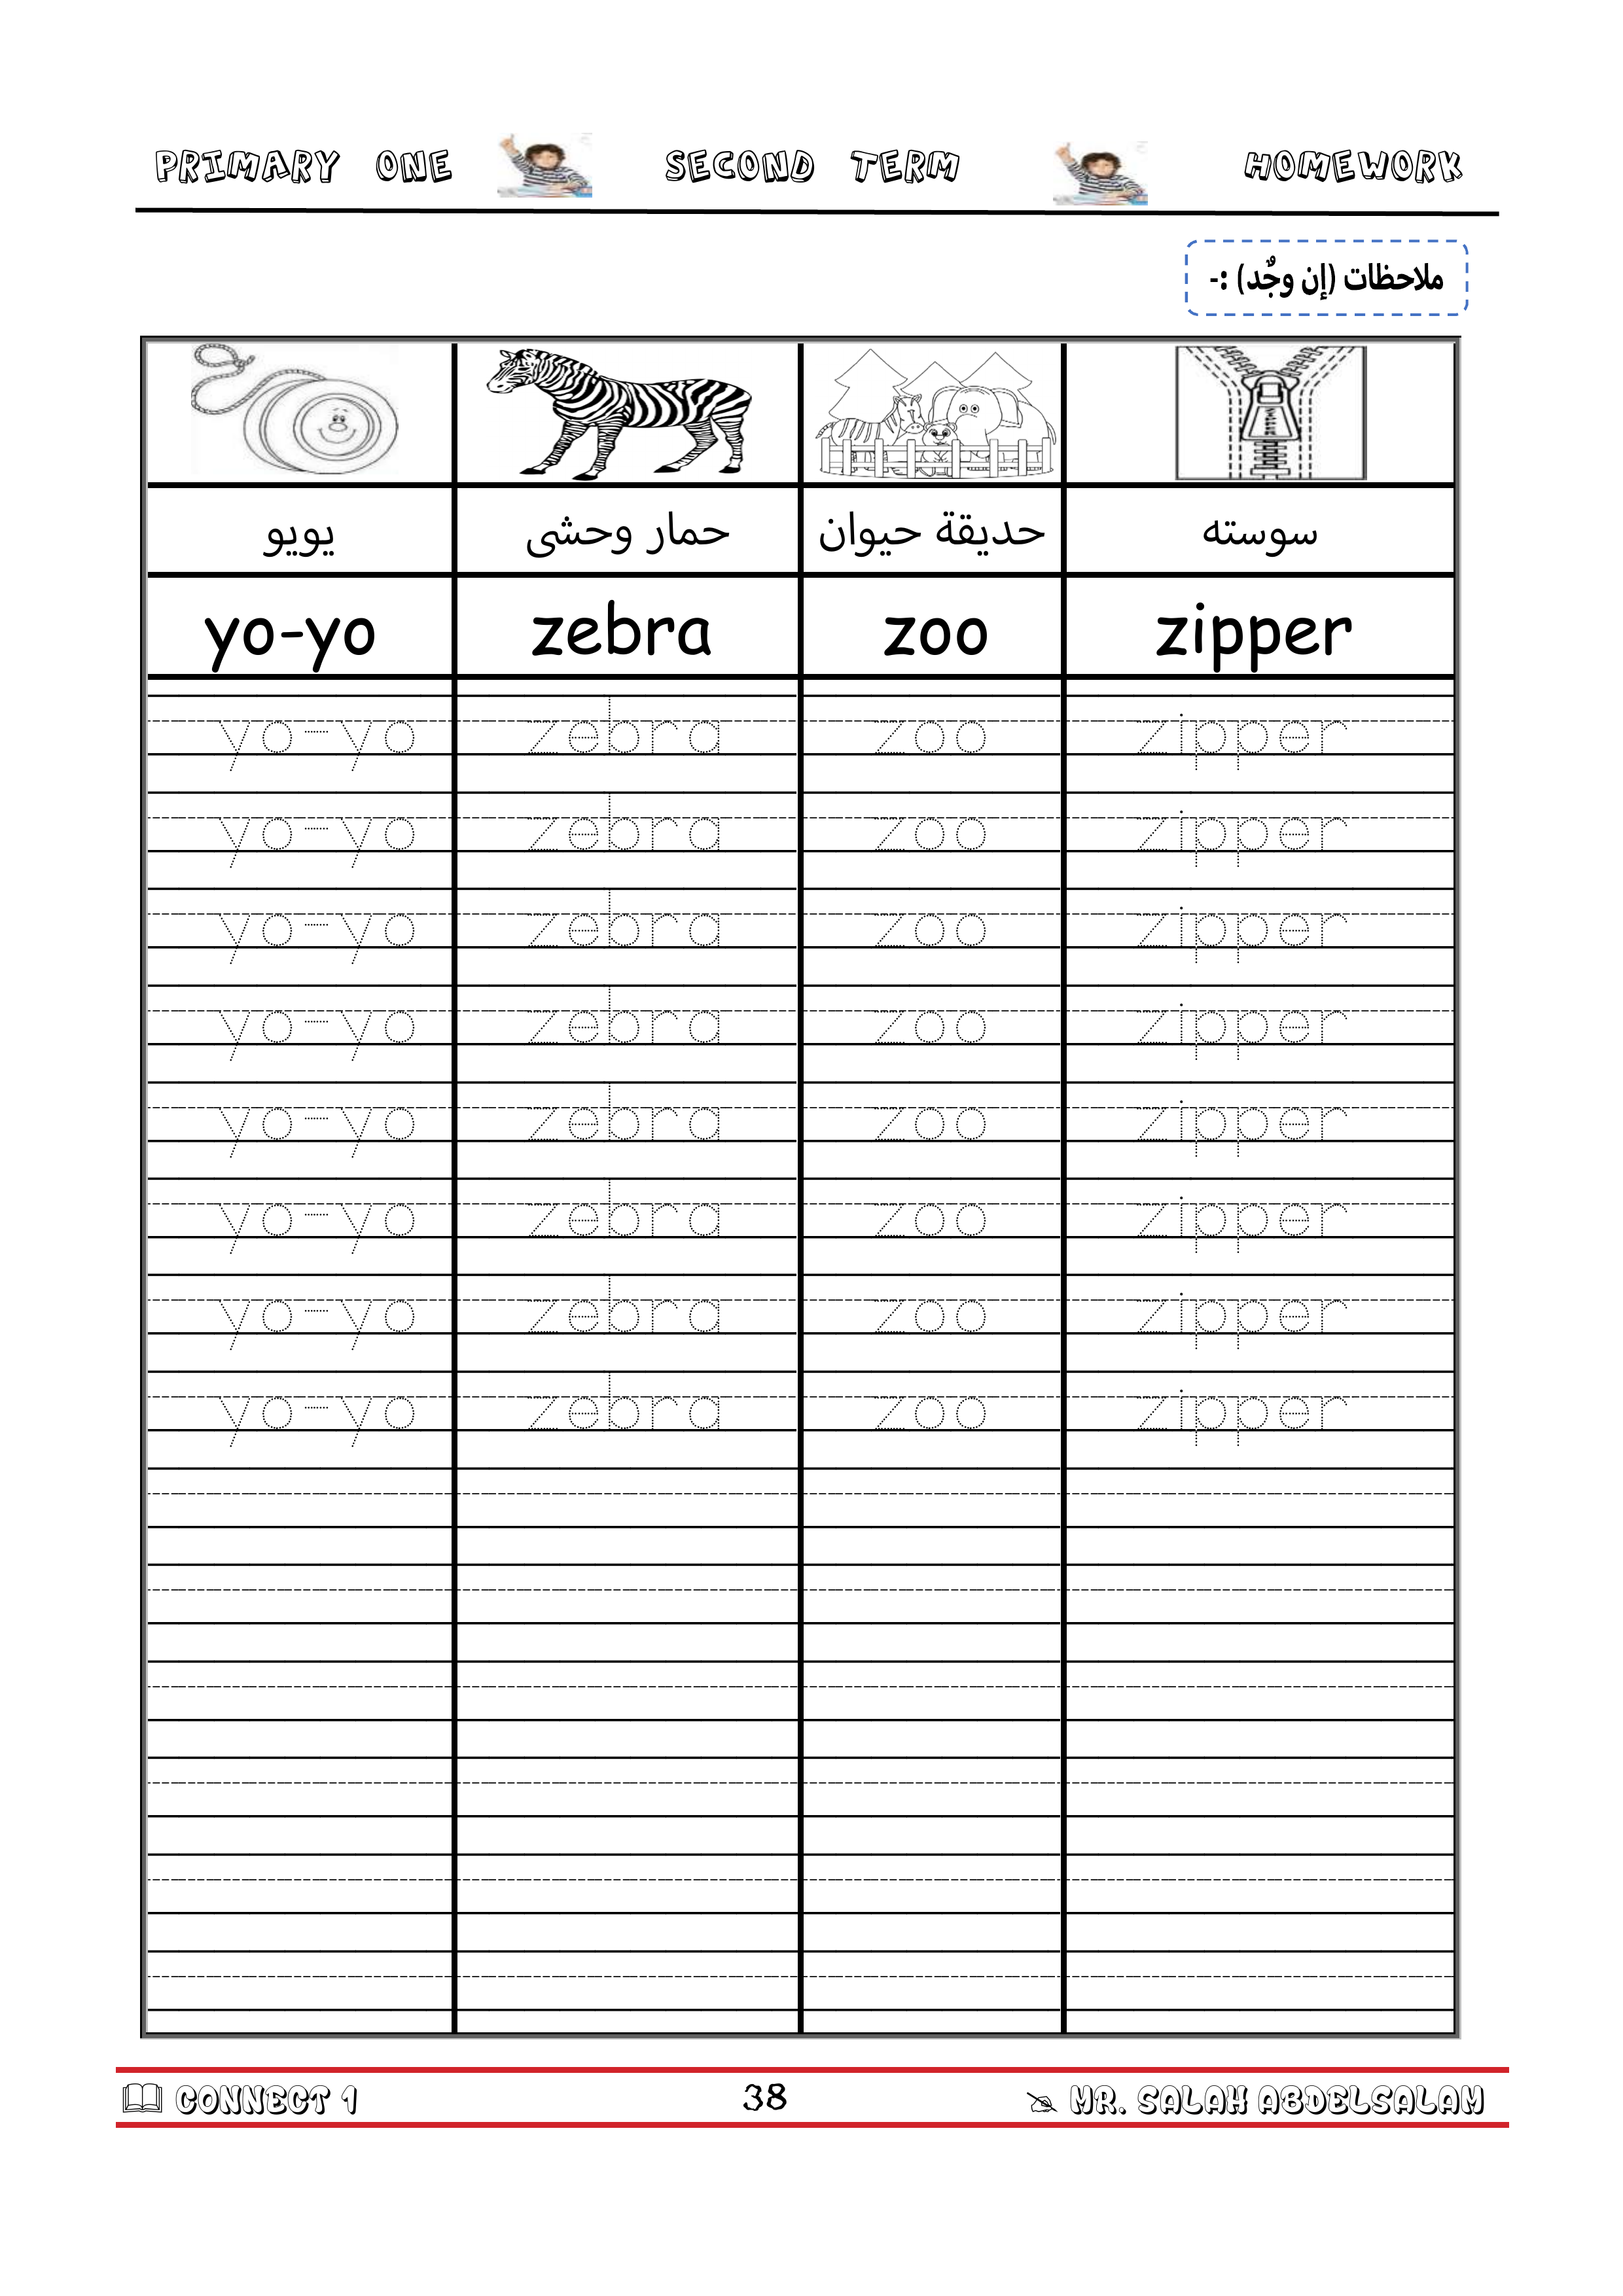 PRIMARY ONE SECOND TERM HOMEWORK
ملاحظات (إن وجٌد) :-
يويو حمار وحشى حديقة حيوان سوسته
yo-yo zebra zoo zipper
yo-yo zebra zoo zipper
yo-yo zebra zoo zipper
yo-yo zebra zoo zipper
yo-yo zebra zoo zipper
yo-yo zebra zoo zipper
yo-yo zebra zoo zipper
yo-yo zebra zoo zipper
yo-yo zebra zoo zipper
CONNECT 1 38 MR. SALAH ABDELSALAM